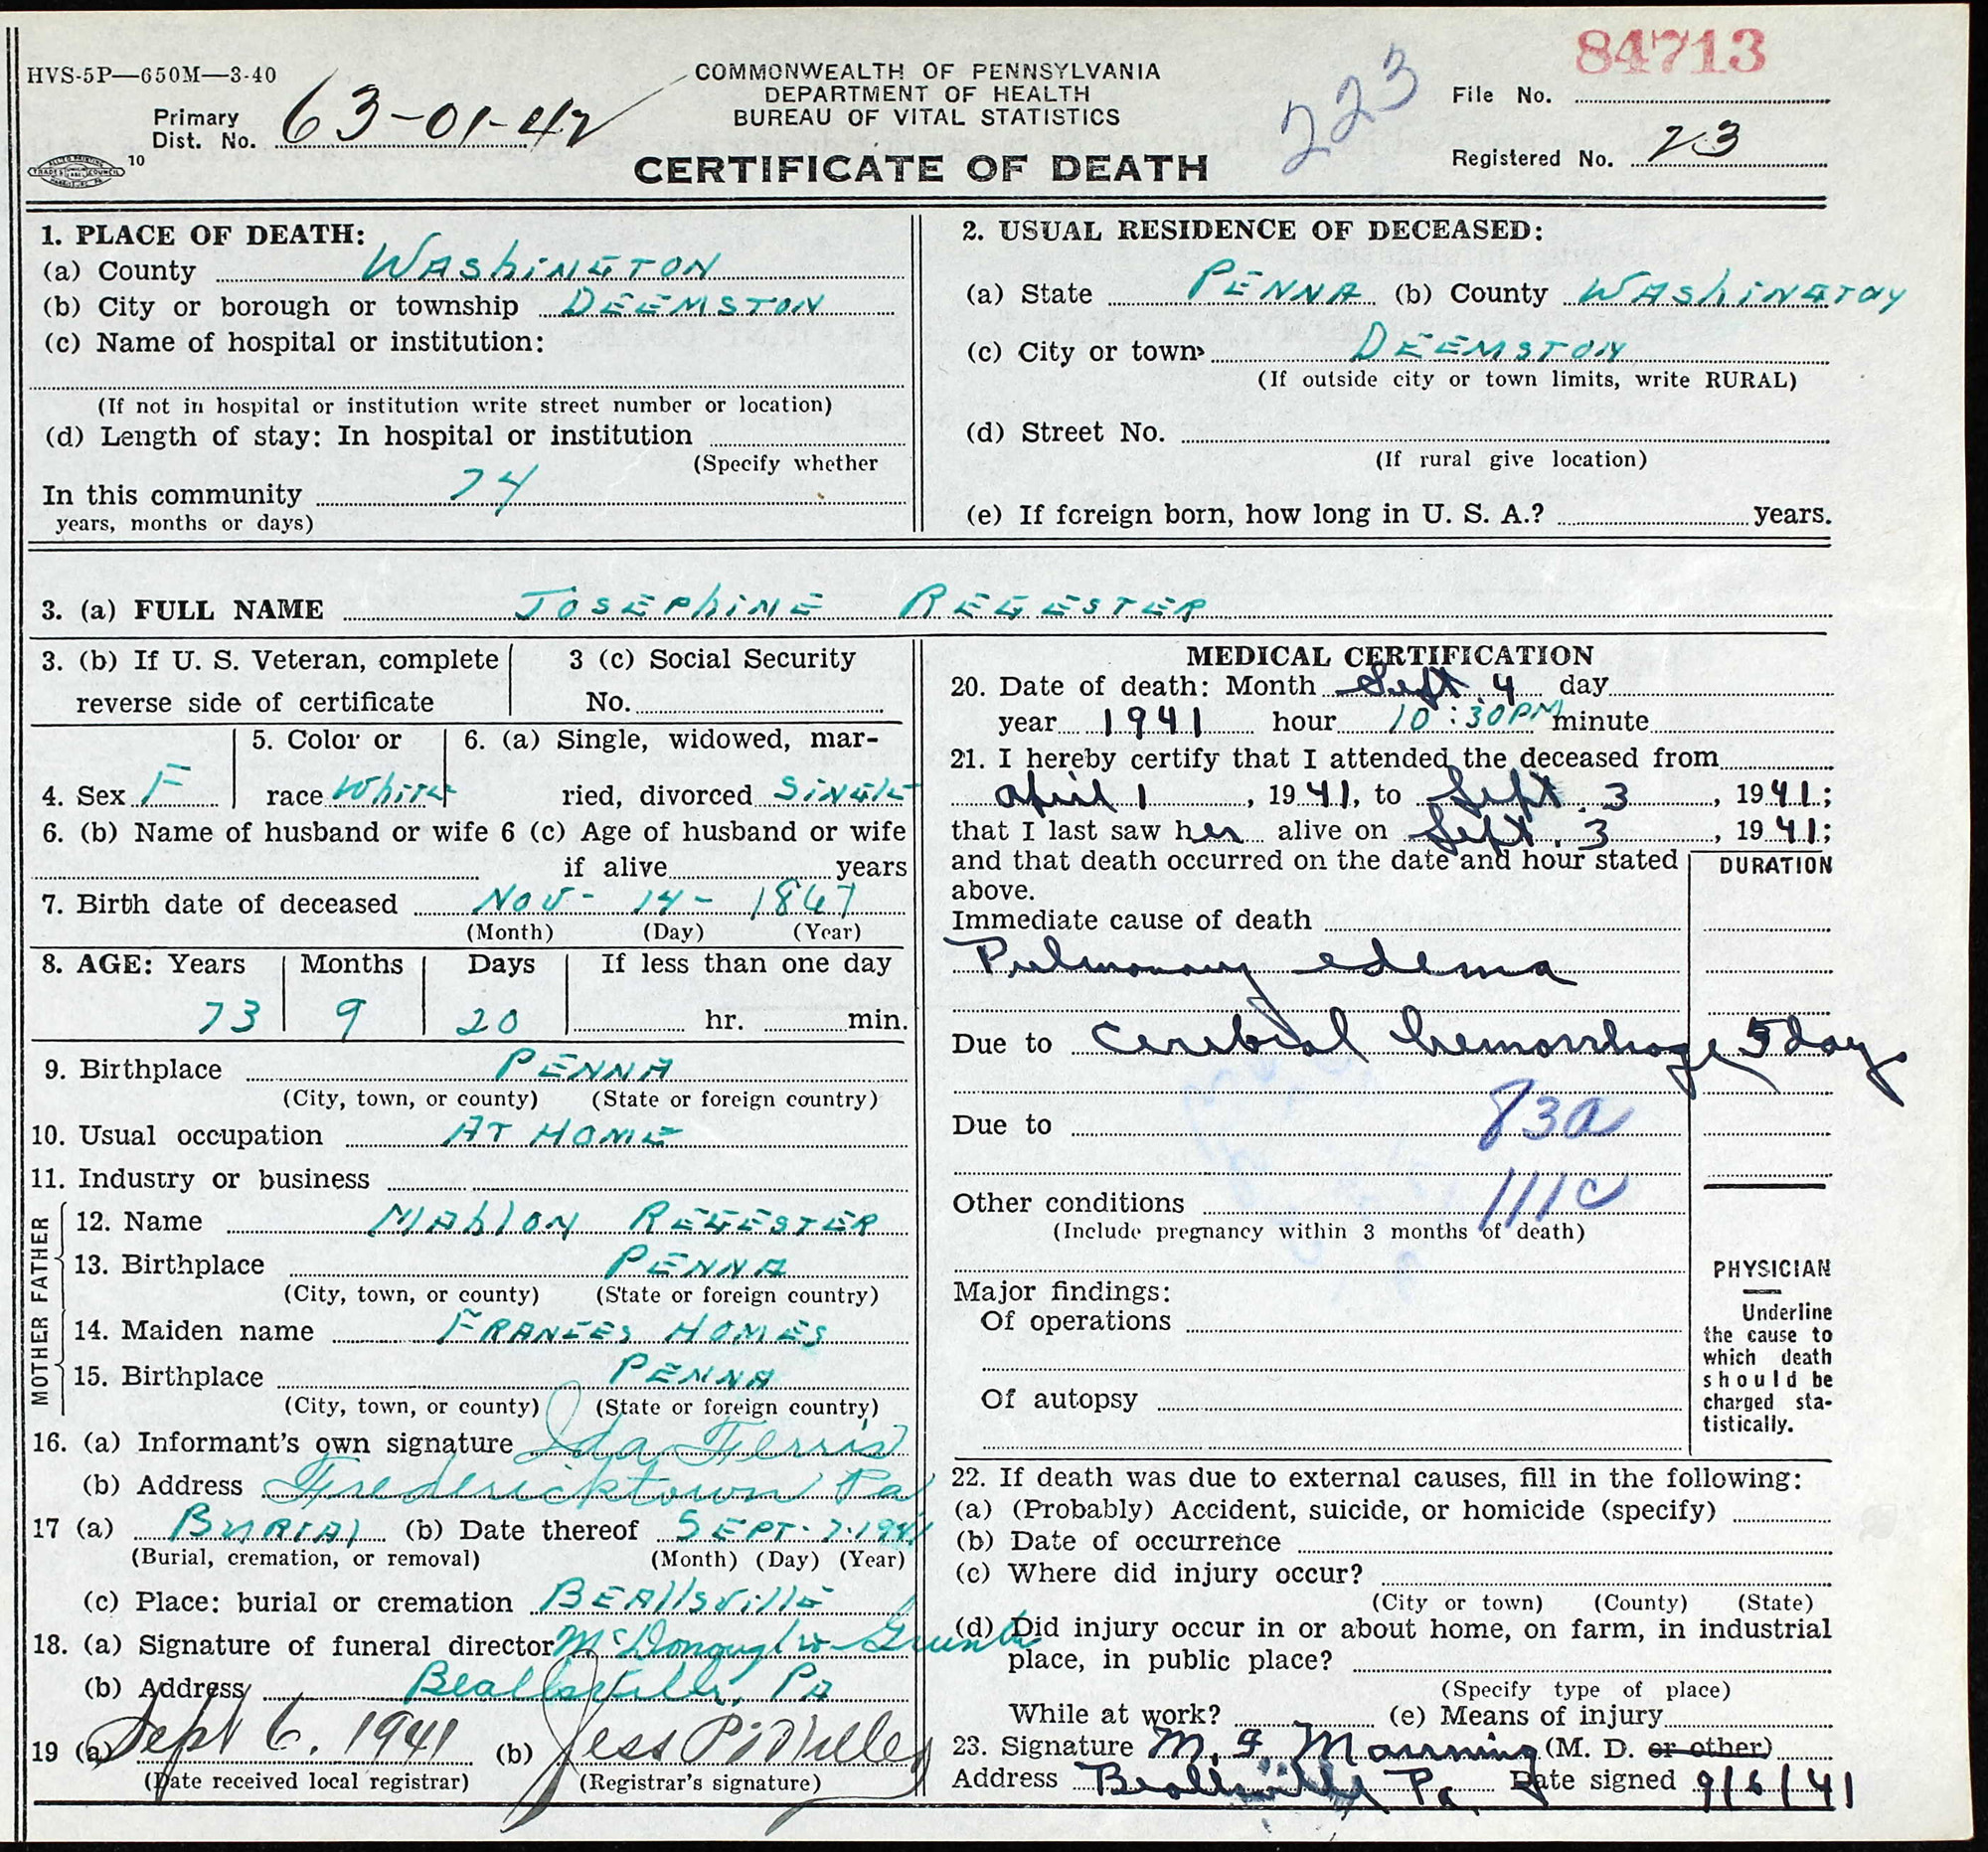 84713
HVS-5P—650M—3-40
COMMONWEALTH OF PENNSYLVANIA
DEPARTMENT OF HEALTH
BUREAU OF VITAL STATISTICS
223
File No.
Primary
Dist. No. 63-01-42
10
CERTIFICATE OF DEATH
Registered No. 23
1. PLACE OF DEATH:
(a) County WAShiNGTON
(b) City or borough or township DEEMSTON
(c) Name of hospital or institution:
(If not in hospital or institution write street number or location)
(d) Length of stay: In hospital or institution
(Specify whether
In this community 74
years, months or days)
2. USUAL RESIDENCE OF DECEASED:
(a) State PENNA (b) County WAShiNGTON
(c) City or town DEEMSTON
(If outside city or town limits, write RURAL)
(d) Street No.
(If rural give location)
(e) If foreign born, how long in U. S. A.? years.
3. (a) FULL NAME JOSEPhiNE REGESTER
3. (b) If U. S. Veteran, complete
reverse side of certificate
3 (c) Social Security
No.
4. Sex F
5. Color or
race WhiTE
6. (a) Single, widowed, mar-
ried, divorced SiNGlE
6. (b) Name of husband or wife 6 (c) Age of husband or wife
if alive years
7. Birth date of deceased Nov- 14- 1867
(Month) (Day) (Year)
8. AGE: Years Months Days If less than one day
73 9 20 hr. min.
9. Birthplace PENNA
(City, town, or county) (State or foreign country)
10. Usual occupation AT HOME
11. Industry or business
FATHER
12. Name MAhlON REGESTER
13. Birthplace PENNA
(City, town, or county) (State or foreign country)
MOTHER
14. Maiden name FRANCES HOMES
15. Birthplace PENNA
(City, town, or county) (State or foreign country)
16. (a) Informant's own signature Ida Ferris
(b) Address Fredericktown Pa
17 (a) BURIAl (b) Date thereof SEPT. 7.1941
(Burial, cremation, or removal) (Month) (Day) (Year)
(c) Place: burial or cremation BEAllsvillE
18. (a) Signature of funeral director McDonough
(b) Address Beallsville, PA
19 (a) Sept 6. 1941 (b) Jess
(Date received local registrar) (Registrar's signature)
MEDICAL CERTIFICATION
20. Date of death: Month Sept. 4 day
year 1941 hour 10:30PM minute
21. I hereby certify that I attended the deceased from
April 1, 1941, to Sept. 3, 1941;
that I last saw her alive on Sept. 3, 1941;
and that death occurred on the date and hour stated
above.
DURATION
Immediate cause of death
Pulmonary edema
Due to Cerebral hemorrhage 5 days
Due to 83a
Other conditions 111c
(Include pregnancy within 3 months of death)
Major findings:
Of operations
Of autopsy
PHYSICIAN
Underline
the cause to
which death
should be
charged sta-
tistically.
22. If death was due to external causes, fill in the following:
(a) (Probably) Accident, suicide, or homicide (specify)
(b) Date of occurrence
(c) Where did injury occur?
(City or town) (County) (State)
(d) Did injury occur in or about home, on farm, in industrial
place, in public place?
(Specify type of place)
While at work? (e) Means of injury
23. Signature M. F. Manning (M. D. or other)
Address Beallsville Pa. Date signed 9/6/41